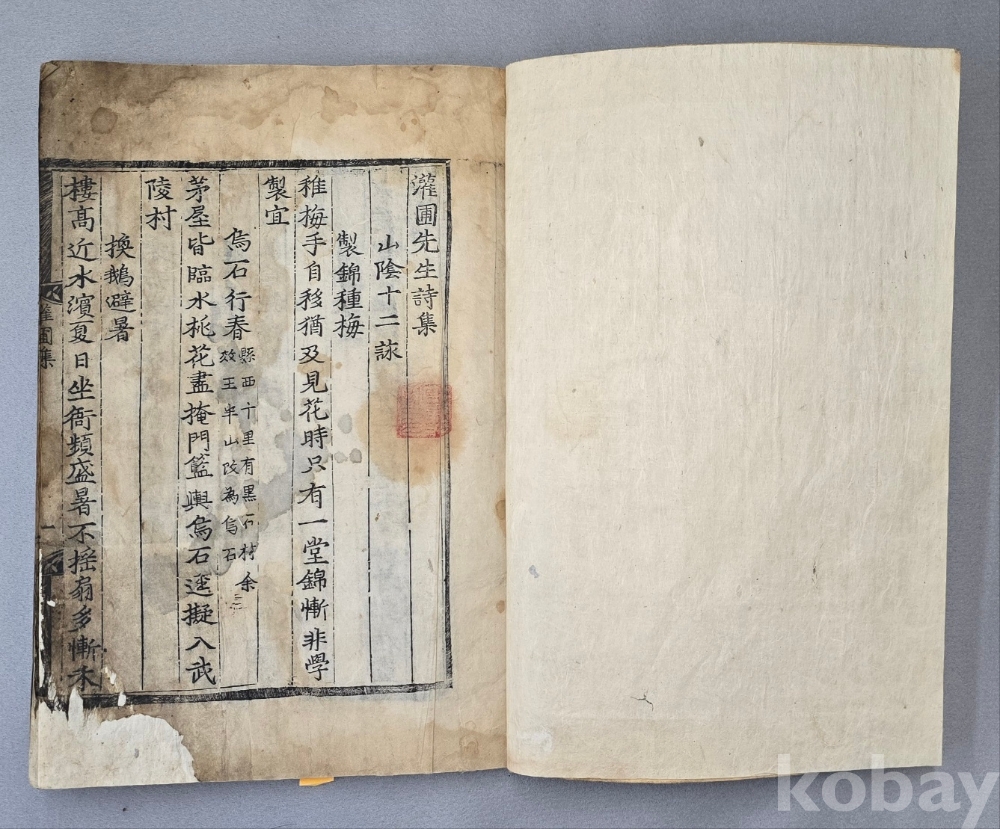 灌圃先生詩集
山陰十二詠
製錦種梅
稚梅手自移猶及見花時只有一堂錦慚非學
製宜
烏石行春
縣西十里有黑石村余
效王半山改為烏石
茅屋皆臨水桃花盡掩門籃輿烏石逕擬入武
陵村
換鵝避暑
樓高近水濱夏日坐衙頻盛暑不搖扇多慚禾
灌圃集
一
kobay